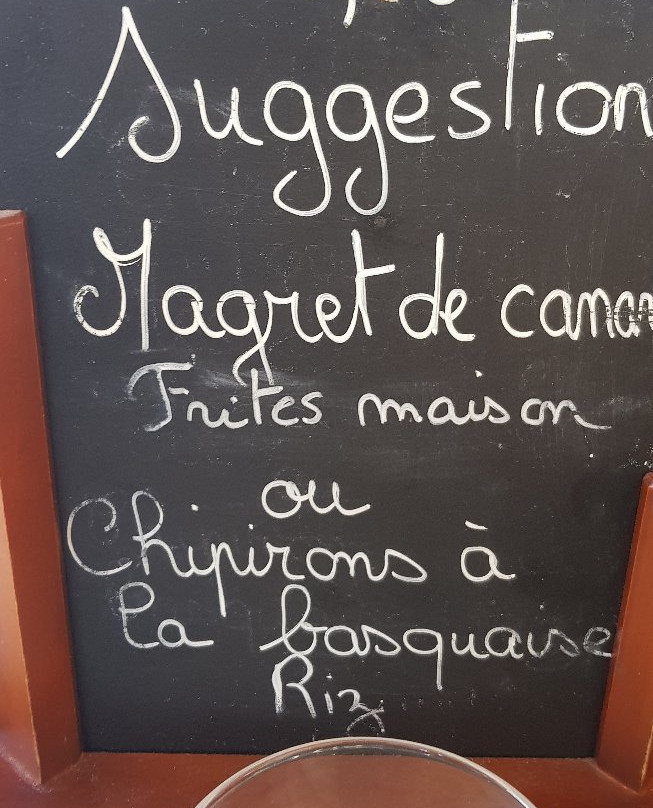 Suggestion
Magret de canar
Frites maison
ou
Chipirons à
la basquaise
Riz